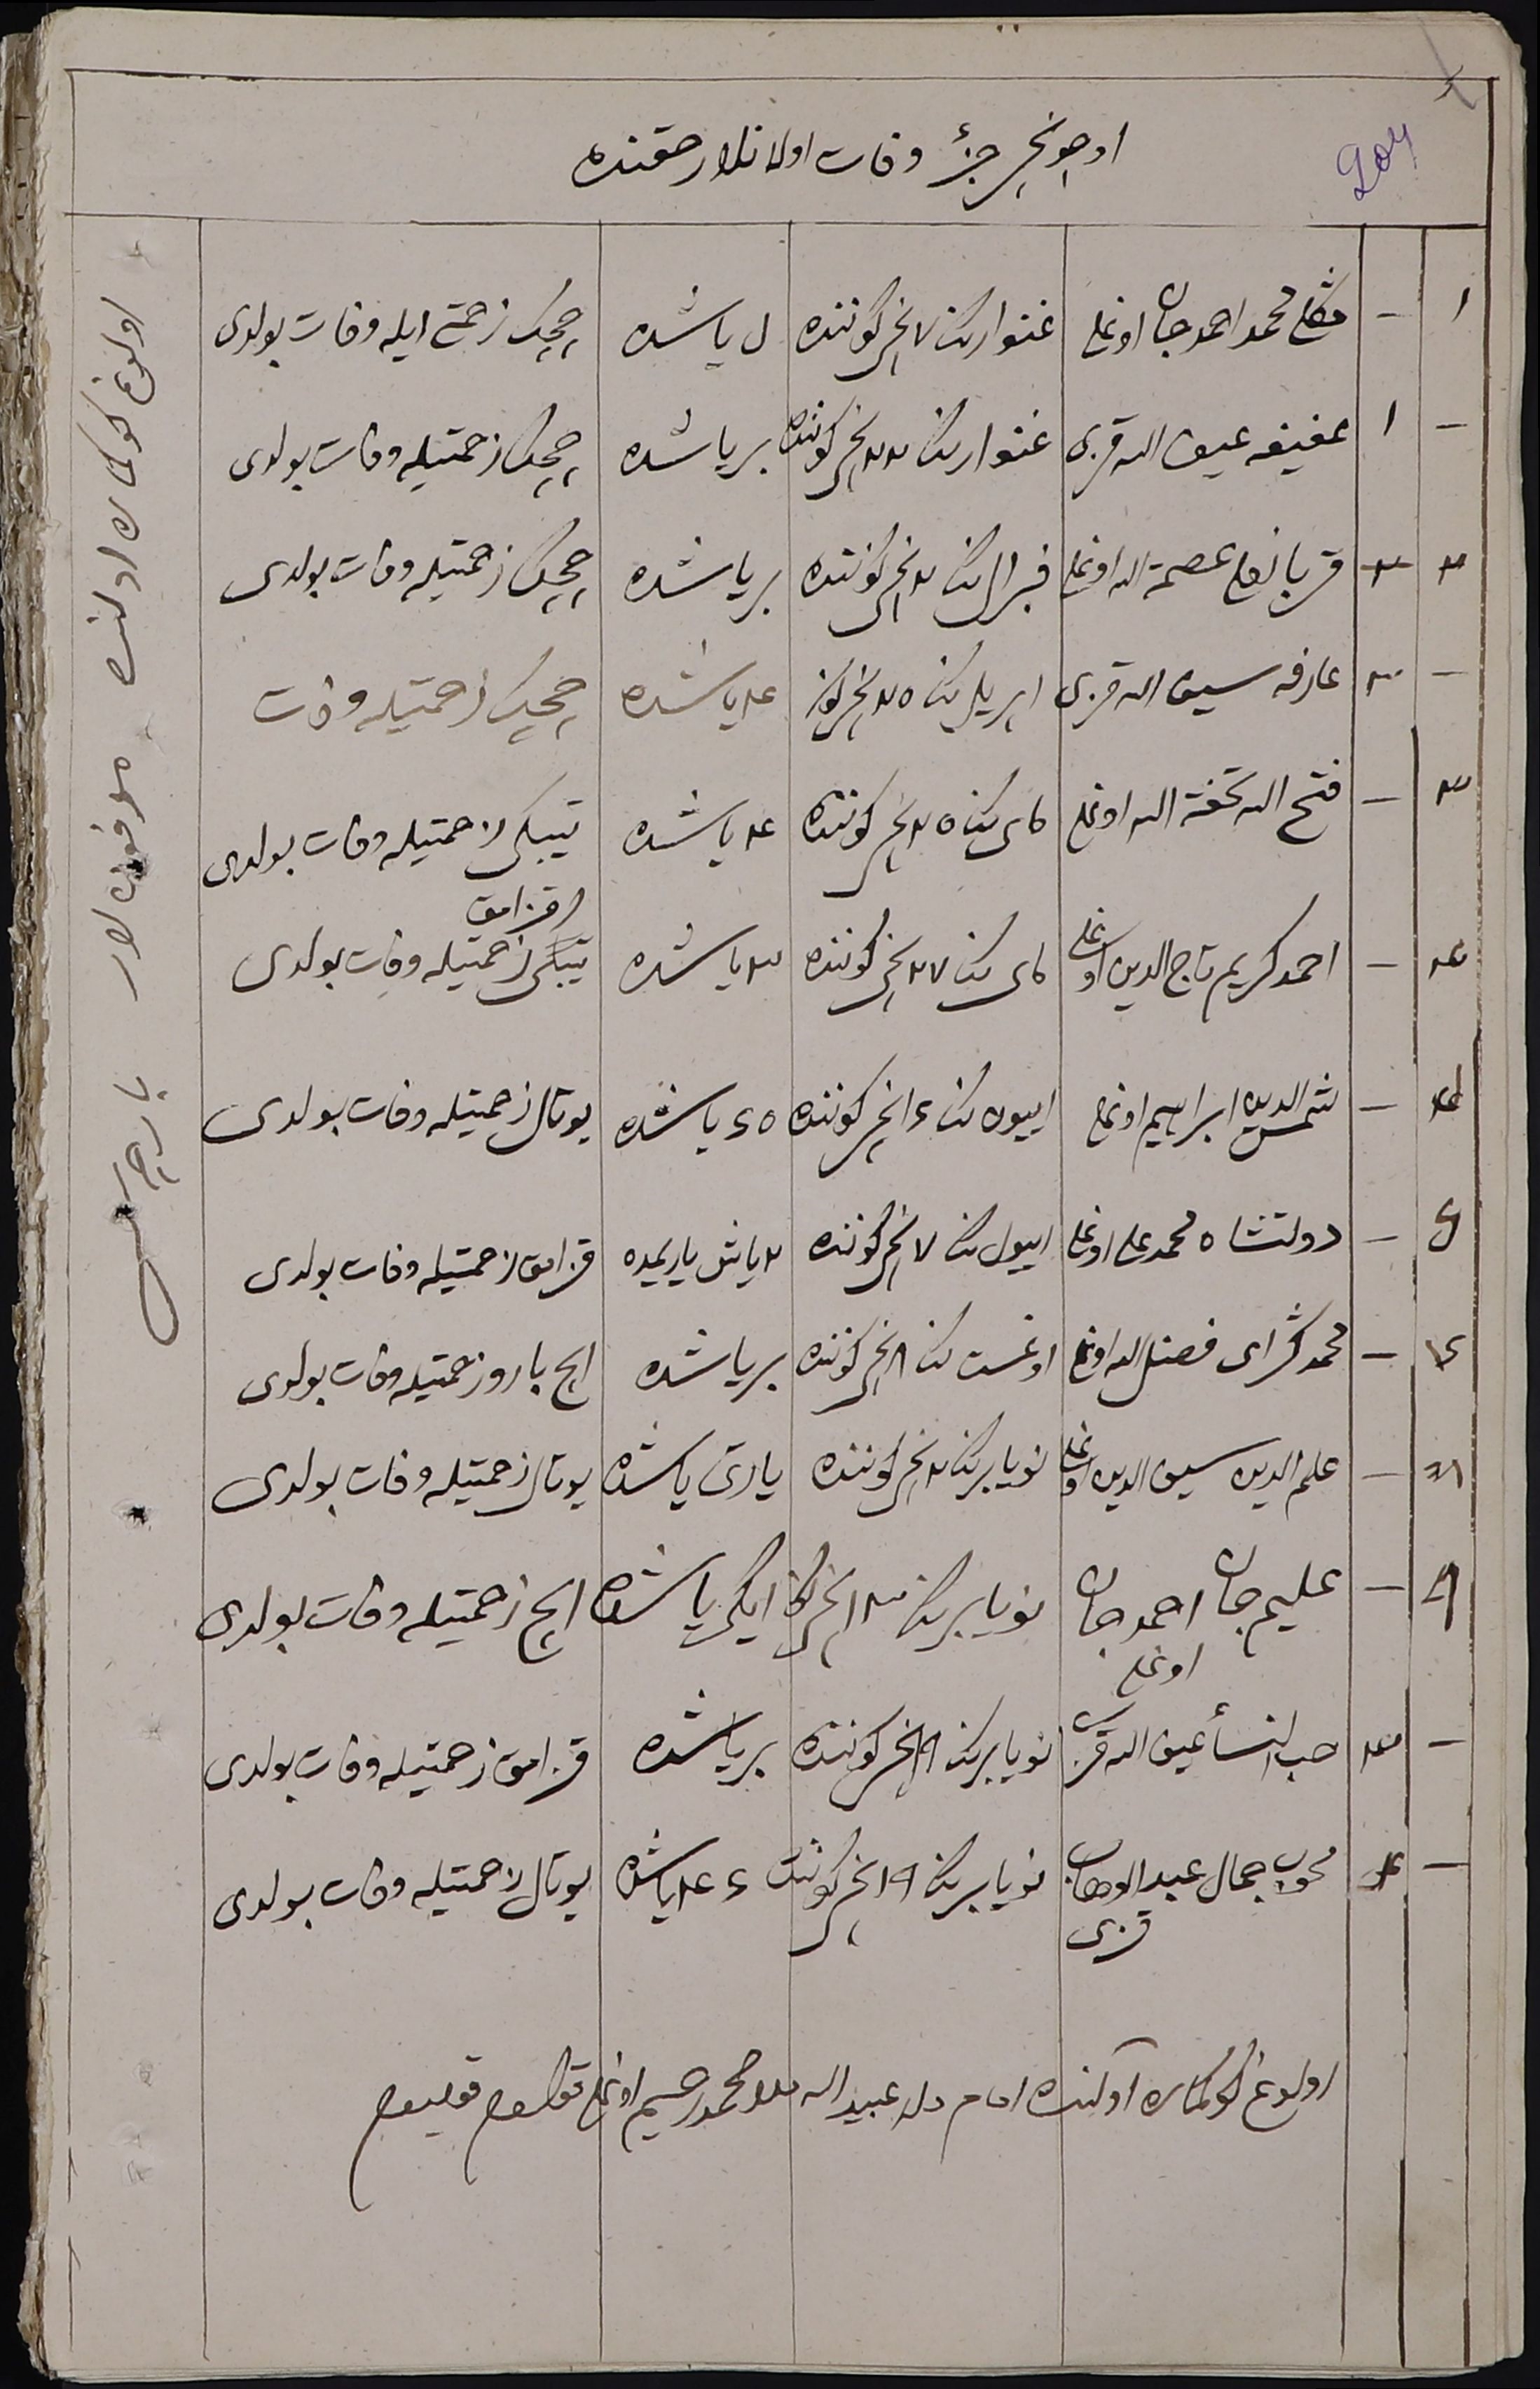 اوچونچی جزؤ وفات اولانلار حقنده
204
۱ - محمد احمدجان اوغلی غنوارنک ۷نچی کوننده یاشنده چچک زحمتی ایله وفات بولدی
- ۱ عفیفه قزی غنوارنک ۲۲نچی کوننده بر یاشنده چچک زحمتیله وفات بولدی
۲ قربانعلی عصمة الله اوغلی فبرالنک ۲نچی کوننده بر یاشنده چچک زحمتیله وفات بولدی
- عارفه سیف الله قزی اپریلنک ۲۵نچی کون ۴ یاشنده چچک زحمتیله وفات
۳ - فتح الله تحفة الله اوغلی مای نک ۲۵نچی کوننده ۴ یاشنده زحمتیله وفات بولدی
۴ - احمدکریم تاج الدین اوغلی مای نک ۲۷نچی کوننده ۳ یاشنده قزامق زحمتیله وفات بولدی
- شمس الدین ابراهیم اوغلی اییون نک ۶نچی کوننده ۶۵ یاشنده یوتال زحمتیله وفات بولدی
۶ - دولتشاه محمدعلی اوغلی اییول نک ۷نچی کوننده ۲ یاش یاریمده قزامق زحمتیله وفات بولدی
۷ - محمدکرای فضل الله اوغلی اوغست نک ۸نچی کوننده بر یاشنده ایچ بارو زحمتیله وفات بولدی
۸ - علم الدین سیف الدین اوغلی نویابرنک ۲نچی کوننده یارتی یاشنده یوتال زحمتیله وفات بولدی
۹ - علیم جان احمدجان نویابرنک ۱۳نچی کون ایکی یاشنده ایچ زحمتیله وفات بولدی
اوغلی
- ۳ حب النسأ قزی نویابرنک ۱۹نچی کوننده بر یاشنده قزامق زحمتیله وفات بولدی
- ۴ محبوب جمال عبدالوهاب نویابرنک ۱۹نچی کوننده ۶۴ یاشنده یوتال زحمتیله وفات بولدی
قزی
اولوغ آولنده امام عبید الله ملا محمدرحیم اوغلی قولم قویدم
اولوغ اولنده متوفی لار یارچه سی